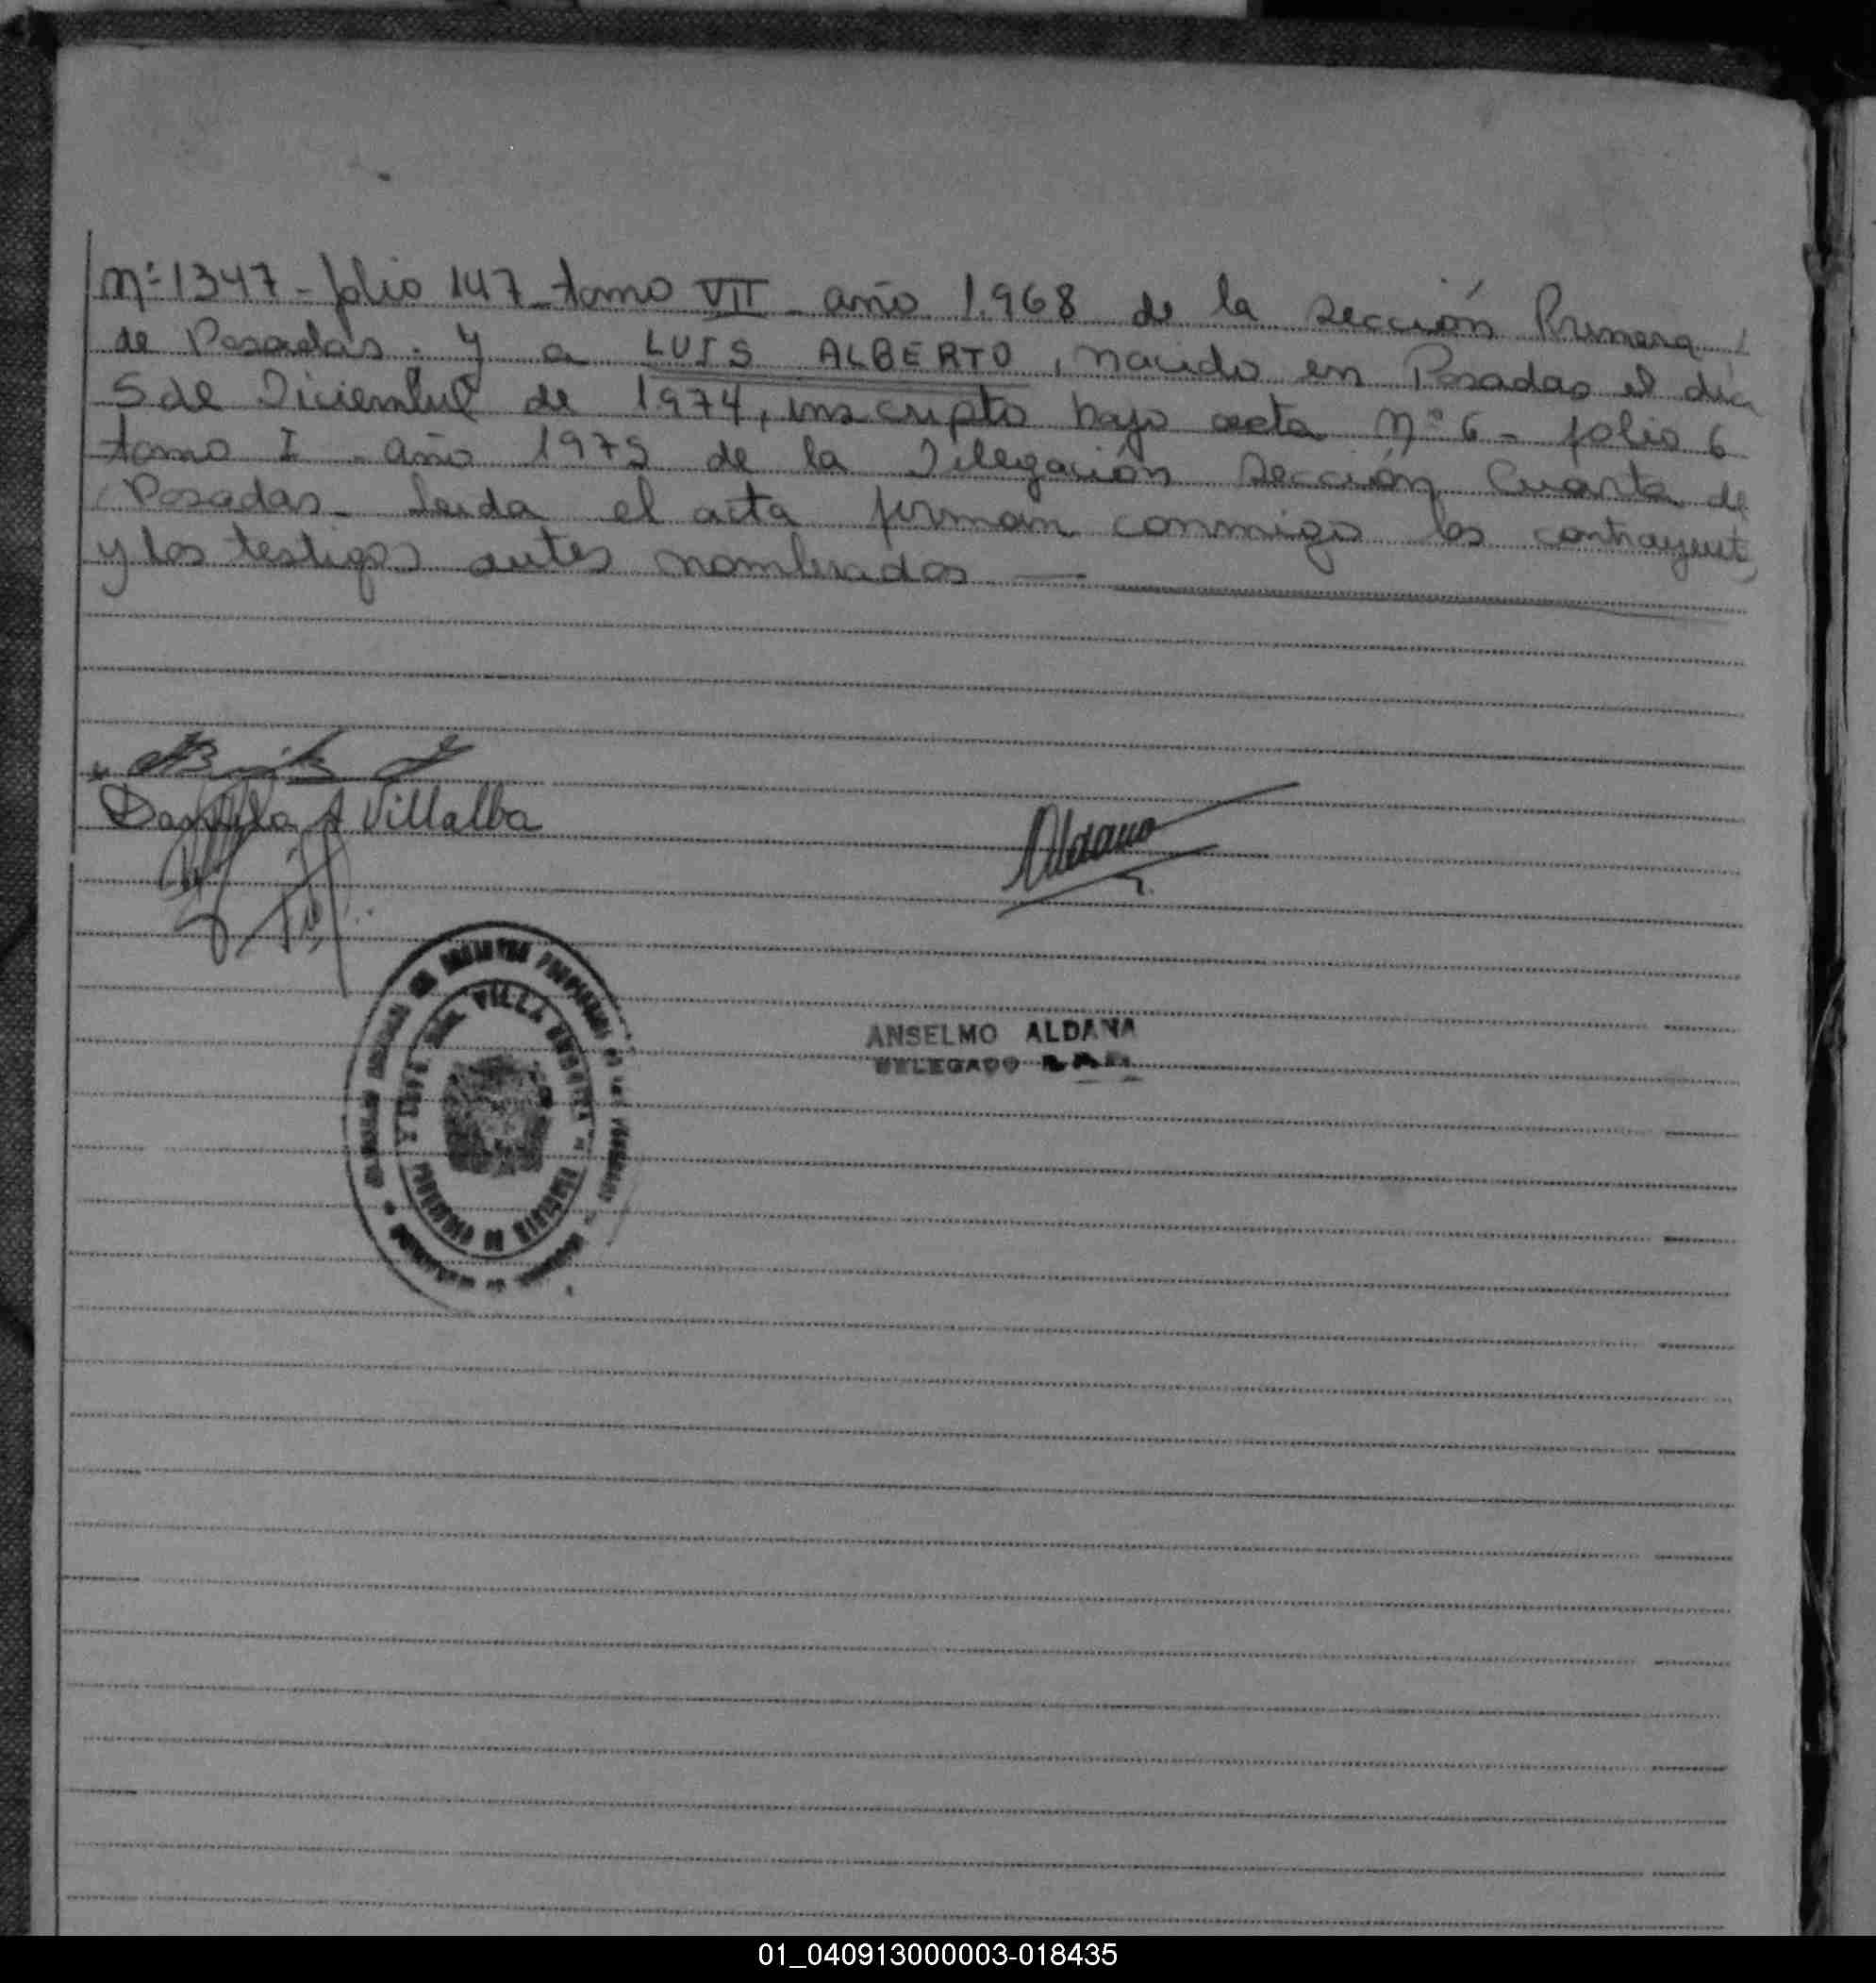 Nº 1347 - folio 147 - tomo VII - año 1.968 de la Sección Primera
de Posadas. y a LUIS ALBERTO, nacido en Posadas el día
5 de Diciembre de 1974, inscripto bajo acta Nº 6 - folio 6
tomo I - año 1975 de la Delegación Sección Cuarta de
Posadas. Leida el acta firman conmigo los contrayent
y los testigos antes nombrados —
A Villalba
Aldana
VILLA
ANSELMO ALDANA
DELEGADO
01_040913000003-018435